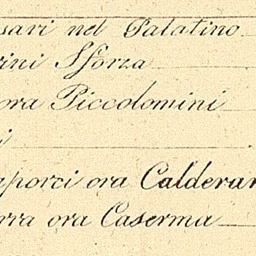 sari nel Palatino
rini Sforza
ora Piccolomini
i
porci ora Calderar
rra ora Caserma